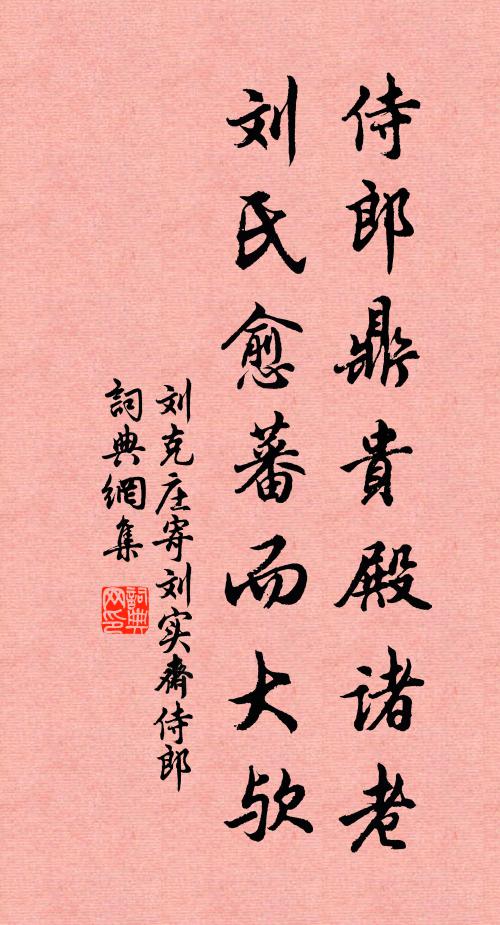 侍郎鼎貴殿诸老
刘氏愈蕃而大欤
刘克庄寄刘实斋侍郎
詞典網集
詞典网印